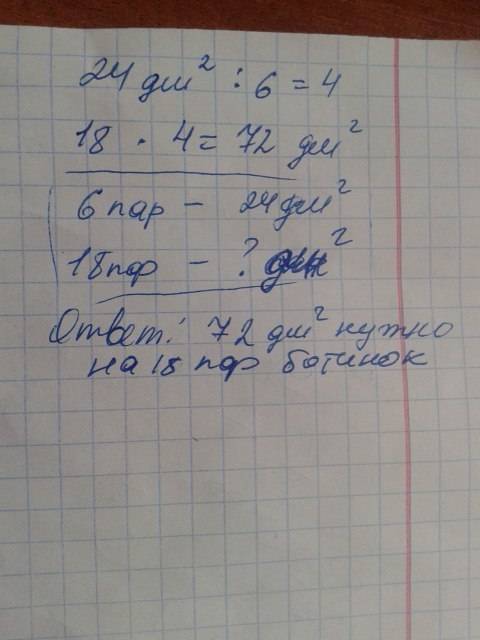 24 дм² : 6 = 4
18 · 4 = 72 дм²
6 пар – 24 дм²
18 пар – ? дм²
Ответ: 72 дм² нужно
на 18 пар ботинок